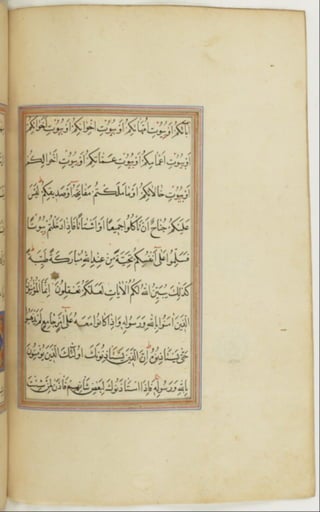 اٰبَآئِكُمْ اَوْ بُيُوتِ اُمَّهَاتِكُمْ اَوْ بُيُوتِ اِخْوَانِكُمْ اَوْ بُيُوتِ اَخَوَاتِكُمْ
اَوْ بُيُوتِ اَعْمَامِكُمْ اَوْ بُيُوتِ عَمَّاتِكُمْ اَوْ بُيُوتِ اَخْوَالِكُمْ
اَوْ بُيُوتِ خَالَاتِكُمْ اَوْ مَا مَلَكْتُمْ مَفَاتِحَهُ اَوْ صَدِيقِكُمْ لَيْسَ
عَلَيْكُمْ جُنَاحٌ اَنْ تَأْكُلُوا جَمِيعًا اَوْ اَشْتَاتًا فَاِذَا دَخَلْتُمْ بُيُوتًا
فَسَلِّمُوا عَلٰى اَنْفُسِكُمْ تَحِيَّةً مِنْ عِنْدِ اللّٰهِ مُبَارَكَةً طَيِّبَةً
كَذٰلِكَ يُبَيِّنُ اللّٰهُ لَكُمُ الْاٰيَاتِ لَعَلَّكُمْ تَعْقِلُونَ اِنَّمَا الْمُؤْمِنُونَ
الَّذِينَ اٰمَنُوا بِاللّٰهِ وَرَسُولِهِ وَاِذَا كَانُوا مَعَهُ عَلٰى اَمْرٍ جَامِعٍ لَمْ يَذْهَبُوا
حَتّٰى يَسْتَأْذِنُوهُ اِنَّ الَّذِينَ يَسْتَأْذِنُونَكَ اُولٰئِكَ الَّذِينَ يُؤْمِنُونَ
بِاللّٰهِ وَرَسُولِهِ فَاِذَا اسْتَأْذَنُوكَ لِبَعْضِ شَأْنِهِمْ فَأْذَنْ لِمَنْ شِئْتَ